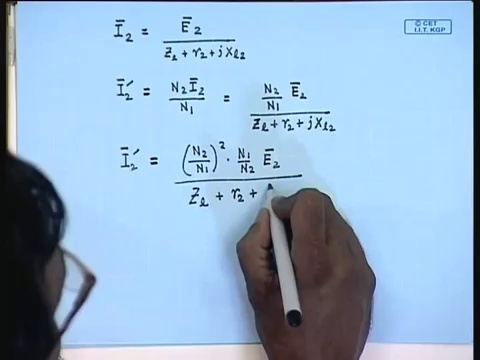 © CET
I.I.T. KGP
Ī₂ = Ē₂ / (Z_l + r₂ + jx_l₂)
Ī₂′ = N₂Ī₂ / N₁ = (N₂/N₁ Ē₂) / (Z_l + r₂ + jx_l₂)
Ī₂′ = ((N₂/N₁)² · N₁/N₂ Ē₂) / (Z_l + r₂ +